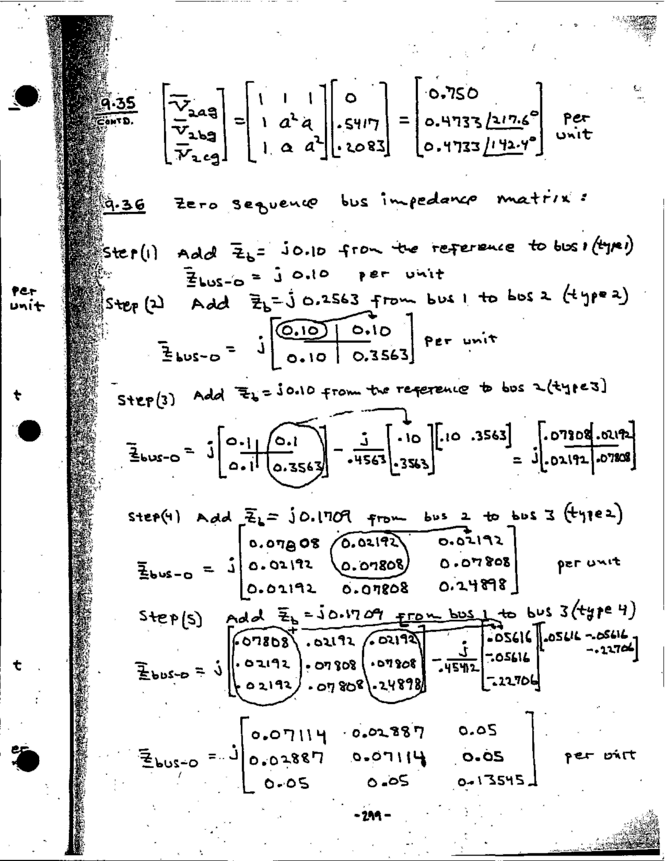 9.35 CONTD. [V̅2ag V̅2bg V̅2cg] = [1 1 1; 1 a² a; 1 a a²] [0 .5417 .2083] = [0.750; 0.4733/217.6°; 0.4733/142.4°] per unit
9.36 Zero sequence bus impedance matrix:
Step(1) Add Z̅b = j0.10 from the reference to bus 1 (type 1)
Z̅bus-0 = j 0.10 per unit
per unit
Step (2) Add Z̅b = j 0.2563 from bus 1 to bus 2 (type 2)
Z̅bus-0 = j [0.10 0.10; 0.10 0.3563] per unit
t
Step(3) Add Z̅b = j0.10 from the reference to bus 2 (type 3)
Z̅bus-0 = j [0.1 0.1; 0.1 0.3563] - j/.4563 [.10 .3563] [.10 .3563] = j [.07808 .02192; .02192 .07808]
Step(4) Add Z̅b = j0.1709 from bus 2 to bus 3 (type 2)
Z̅bus-0 = j [0.07808 0.02192 0.02192; 0.02192 0.07808 0.07808; 0.02192 0.07808 0.24898] per unit
Step(5) Add Z̅b = j0.1709 from bus 1 to bus 3 (type 4)
t
Z̅bus-0 = j [.07808 .02192 .02192; .02192 .07808 .07808; .02192 .07808 .24898] - j/.45412 [.05616 -.05616 -.22706] [.05616 -.05616 -.22706]
Z̅bus-0 = j [0.07114 0.02887 0.05; 0.02887 0.07114 0.05; 0.05 0.05 0.13545] per unit
er
-299-